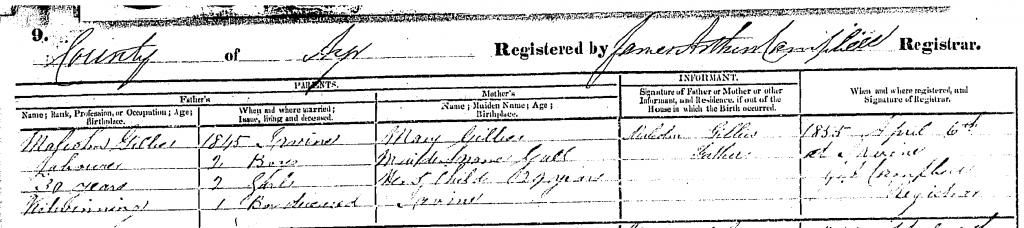 9. County of Ayr Registered by James Arthur Campbell Registrar.
PARENTS.
INFORMANT.
Father's
Name; Rank, Profession, or Occupation; Age;
Birthplace.
When and where married;
Issue, living and deceased.
Mother's
Name; Maiden Name; Age;
Birthplace.
Signature of Father or Mother or other
Informant, and Residence, if out of the
House in which the Birth occurred.
When and where registered, and
Signature of Registrar.
Malcolm Gillies
Labourer
30 years
Kilwinning
1845 Irvine
2 Boys
2 Girls
1 Boy deceased
Mary Gillies
Maiden name
Child 29 years
Irvine
Malcolm Gillies
Father
1855 April 6th
at Irvine
Campbell
Registrar